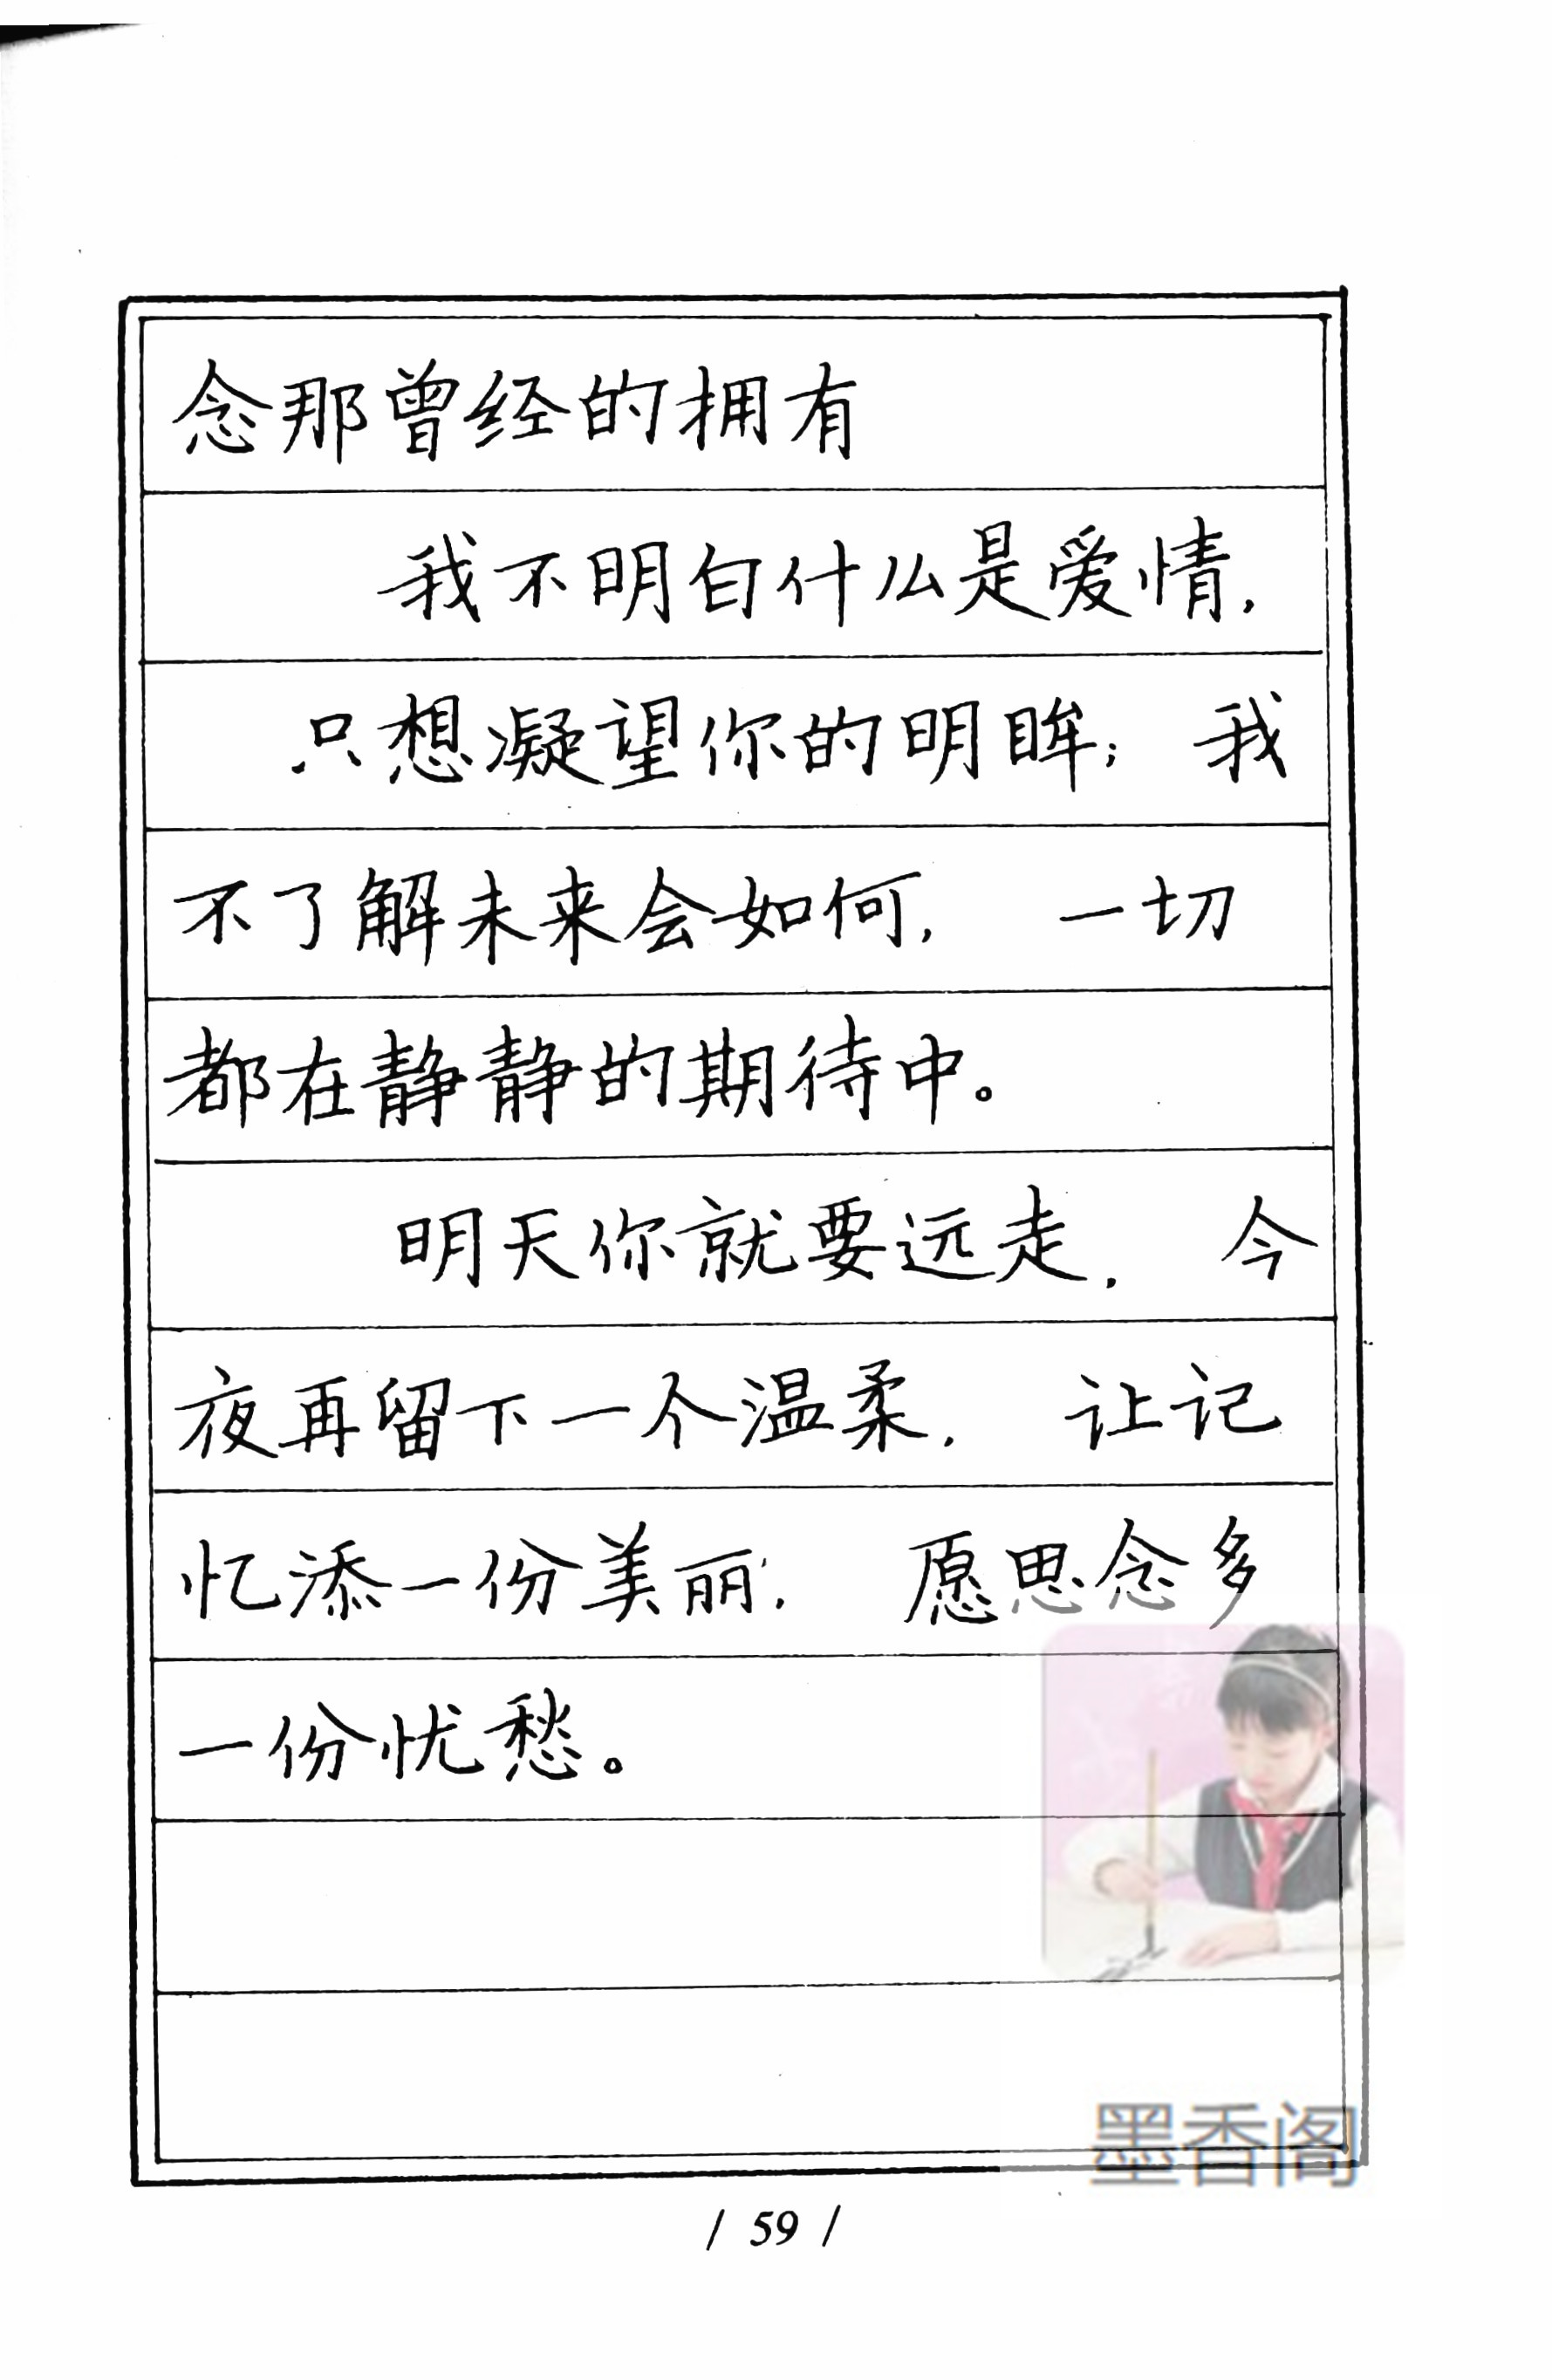 念那曾经的拥有
我不明白什么是爱情，
只想凝望你的明眸；我
不了解未来会如何，一切
都在静静的期待中。
明天你就要远走，今
夜再留下一个温柔，让记
忆添一份美丽，愿思念多
一份忧愁。
墨香阁
/ 59 /